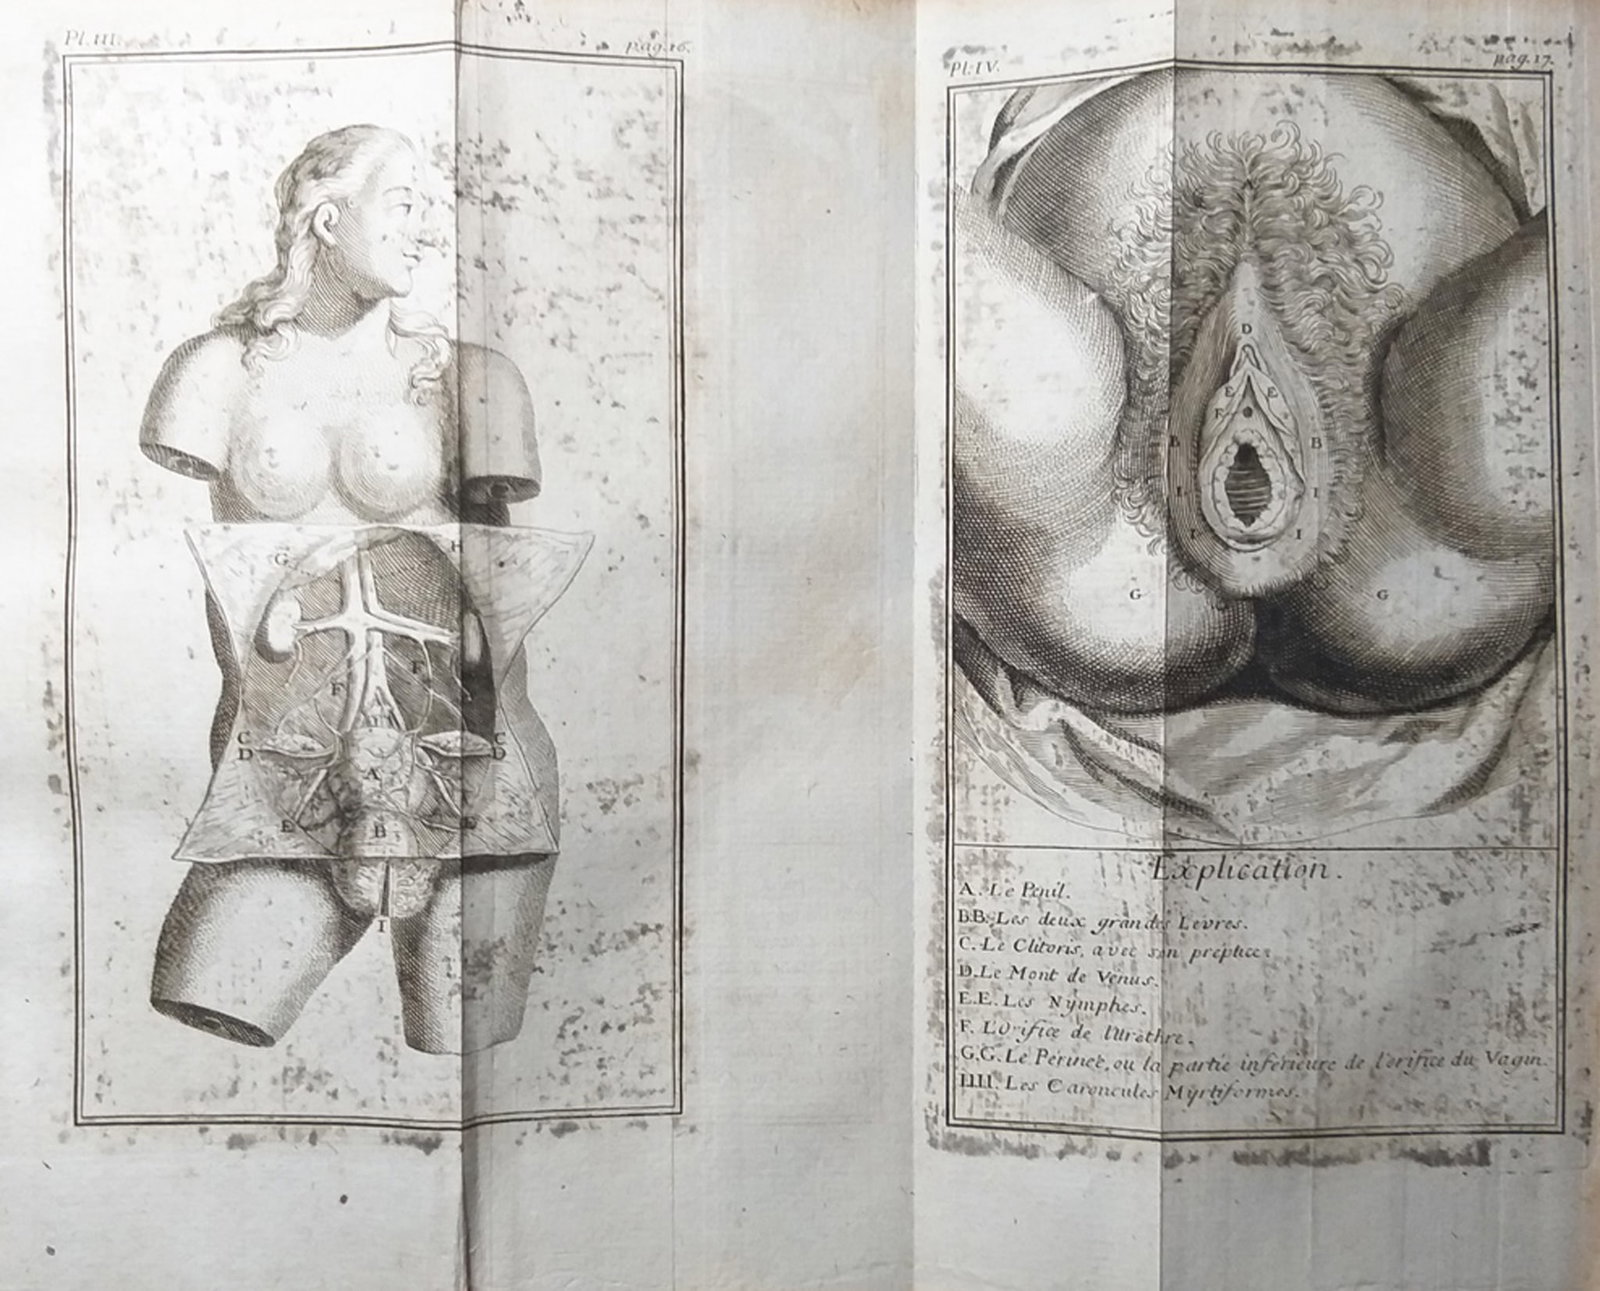 Pl. III.
pag. 16.
G
H
F
F
A
C
C
D
D
A
E
E
B
I
Pl. IV.
pag. 17.
D
E
E
F
B
B
I
I
I
I
G
G
Explication.
A. Le Penil.
B.B. Les deux grandes Levres.
C. Le Clitoris, avec son prépuce.
D. Le Mont de Venus.
E.E. Les Nymphes.
F. L'Orifice de l'Urethre.
G.G. Le Perineé, ou la partie inferieure de l'orifice du Vagin.
IIII. Les Caroncules Myrtiformes.